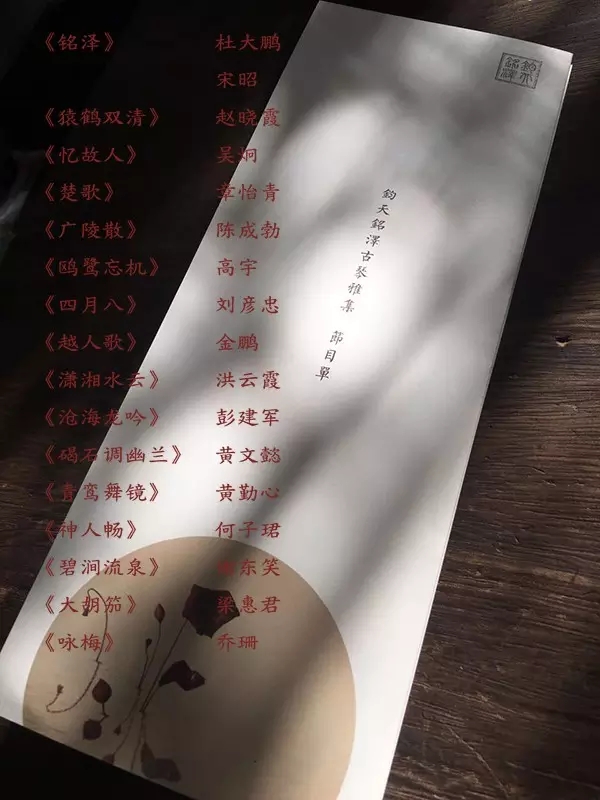 《铭泽》 杜大鹏
宋昭
《猿鹤双清》 赵晓霞
《忆故人》 吴炯
《楚歌》 章怡青
《广陵散》 陈成勃
《鸥鹭忘机》 高宇
《四月八》 刘彦忠
《越人歌》 金鹏
《潇湘水云》 洪云霞
《沧海龙吟》 彭建军
《碣石调幽兰》 黄文懿
《青鸾舞镜》 黄勤心
《神人畅》 何子珺
《碧涧流泉》 东笑
《大胡笳》 梁惠君
《咏梅》 乔珊
鈞天
銘澤
鈞天銘澤古琴雅集 節目單